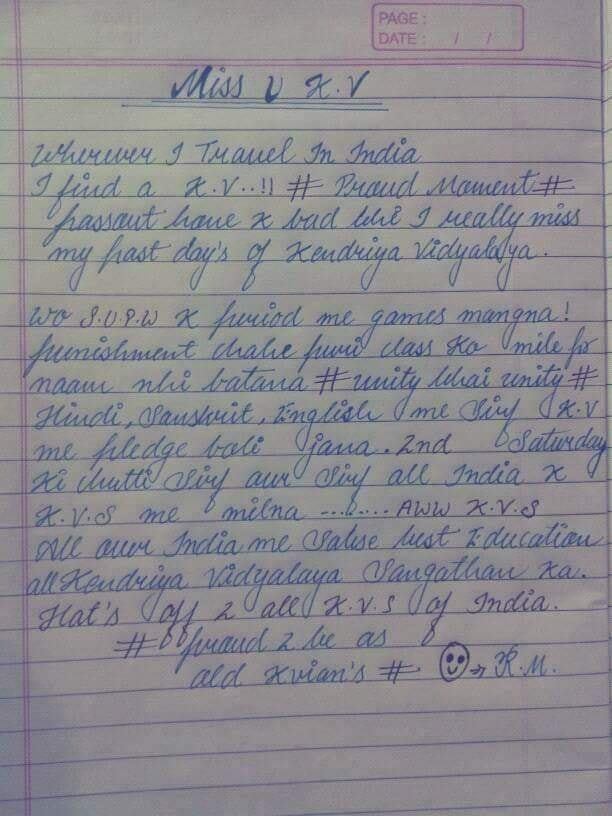 PAGE :
DATE : / /
Miss U K.V
Wherever I Travel In India
I find a K.V..!! # Proud Moment #
passout hone K bad bhi I really miss
my past day's of Kendriya Vidyalaya.
Wo S.U.P.W K period me games mangna!
punishment chahe puri class ko mile pr
naam nhi batana # unity bhai unity #
Hindi, Sanskrit, English me Sirf K.V
me pledge boli jana. 2nd Saturday
Ki chutti Sirf aur Sirf all India K
K.V.S me milna ......... AWW K.V.S
All over India me Sabse best Education
all Kendriya Vidyalaya Sangathan Ka.
Hat's off 2 all K.V.S of India.
# proud 2 be as
old Kvian's # → R.M.